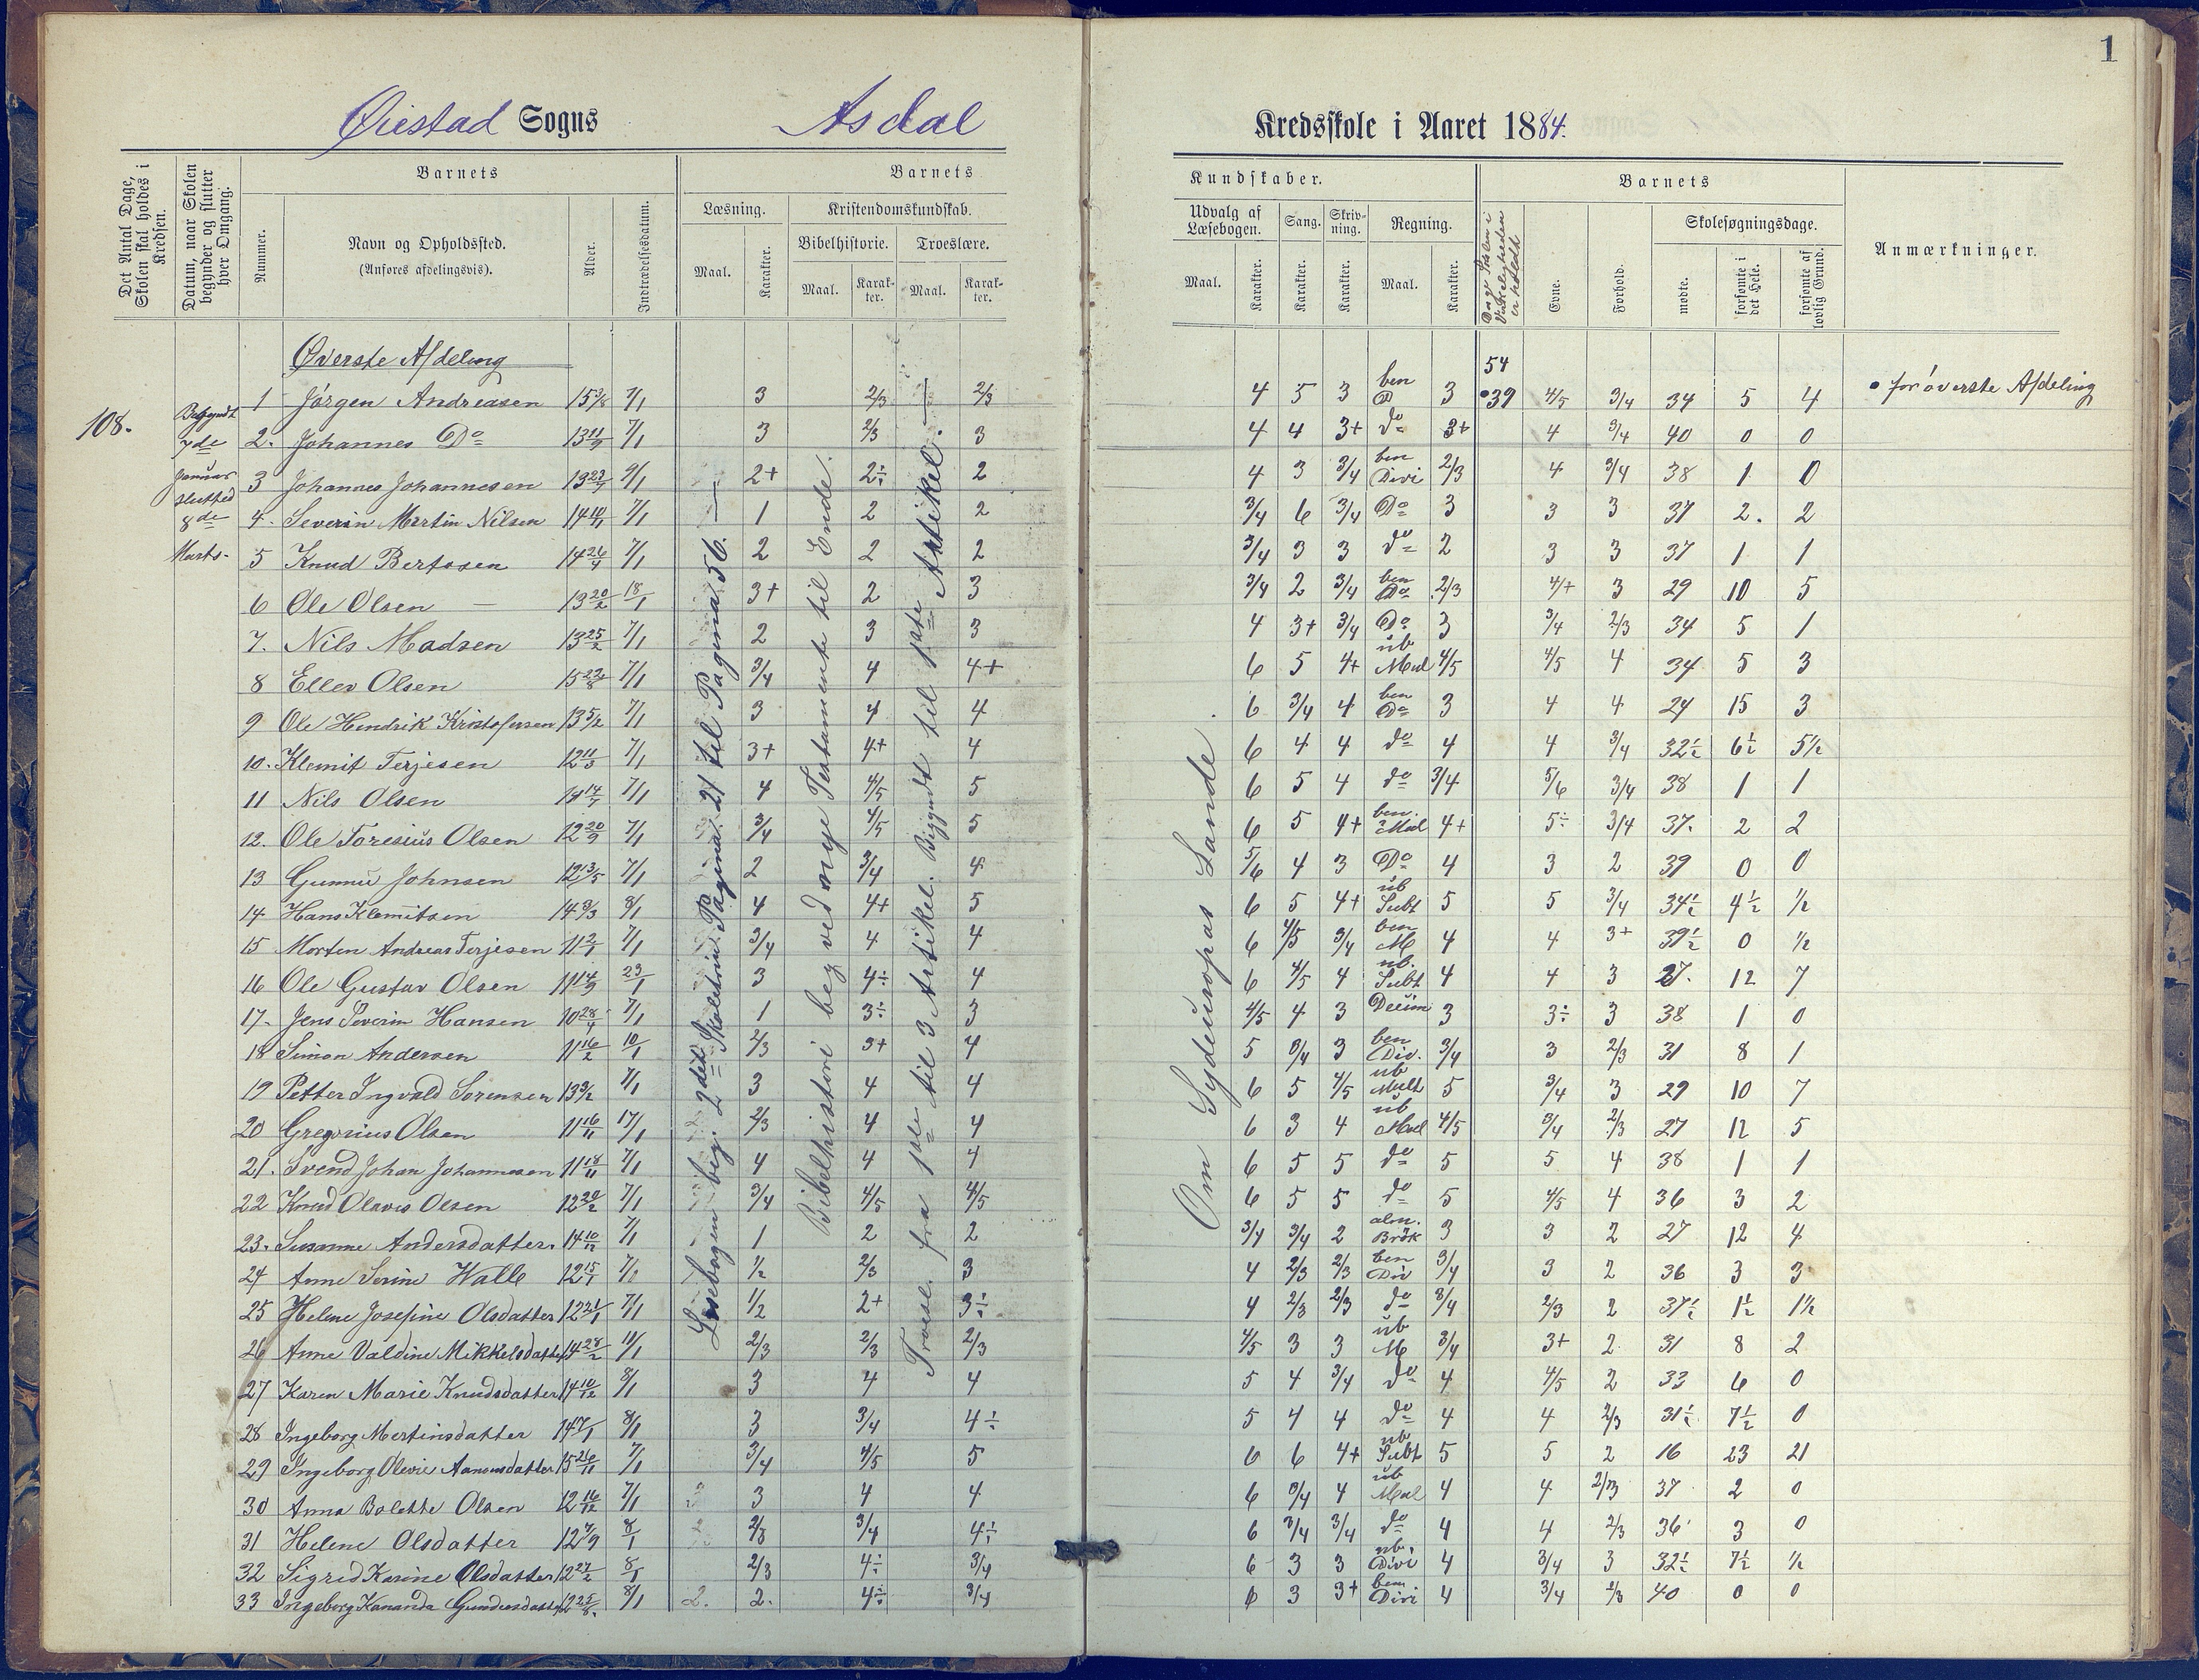 1
Øiestad Sogns Asdal Kredsskole i Aaret 1884.
Det Antal Dage, Skolen skal holdes i Kredsen.
Datum, naar Skolen begynder og slutter hver Omgang.
Barnets
Nummer.
Navn og Opholdssted.
(Anføres afdelingsvis).
Alder.
Indtrædelsesdatum.
Barnets Kundskaber.
Læsning.
Maal.
Karakter.
Kristendomskundskab.
Bibelhistorie.
Maal.
Karakter.
Troeslære.
Maal.
Karakter.
Udvalg af Læsebogen.
Maal.
Karakter.
Sang.
Karakter.
Skrivning.
Karakter.
Regning.
Maal.
Karakter.
Dage Skolen i Virkeligheden er holdt
Barnets
Evne.
Forhold.
Skolesøgningsdage.
mødte.
forsømte i det Hele.
forsømte af lovlig Grund.
Anmærkninger.
108.
Begyndt 7de Januar slutted 8de Marts.
Øverste Afdeling
54
1 Jørgen Andreasen 15 3/8 7/1 3 2/3 2/3 4 5 3 ben D 3 •39 4/5 3/4 34 5 4 • for øverste Afdeling
2. Johannes Do 13 11/9 7/1 3 2/3 3 4 4 3+ do 3+ 4 3/4 40 0 0
3 Johannes Johannesen 13 23/9 9/1 2+ 2÷ 2 4 3 3/4 ben Divi 2/3 4 3/4 38 1 0
4. Severin Martin Nilsen 14 10/11 7/1 1 2 2 3/4 6 3/4 Do 3 3 3 37 2. 2
5 Knud Bertosen 14 26/4 7/1 2 2 2 3/4 3 3 do 2 3 3 37 1 1
6 Ole Olsen 13 20/2 18/1 3+ 2 3 3/4 2 3/4 ben Do 2/3 4/+ 3 29 10 5
7. Nils Madsen 13 25/2 7/1 2 3 3 4 3+ 3/4 Do 3 3/4 2/3 34 5 1
8 Ellev Olsen 15 22/8 7/1 3/4 4 4+ 6 5 4+ ub Mul 4/5 4/5 4 34 5 3
9 Ole Hendrik Kristofersen 13 5/2 7/1 3 4 4 6 3/4 4 ben Do 3 4 4 24 15 3
10. Klemit Terjesen 12 11/3 7/1 3+ 4+ 4 6 4 4 do 4 4 3/4 32½ 6½ 5½
11 Nils Olsen 14/7 7/1 4 4/5 5 6 5 4 do 3/4 5/6 3/4 38 1 1
12. Ole Toresius Olsen 12 20/9 7/1 3/4 4/5 5 6 5 4+ ben. Mul 4+ 5÷ 3/4 37. 2 2
13 Gunnu Johnsen 12 13/5 7/1 2 3/4 4 5/6 4 3 Do 4 3 2 39 0 0
14 Hans Klemitsen 14 3/3 8/1 4 4+ 5 6 5 4+ ub Subt 5 5 3/4 34½ 4½ ½
15 Morten Andreas Terjesen 11 2/1 7/1 3/4 4 4 6 4/5 3/4 ben M 4 4 3+ 39½ 0 ½
16 Ole Gustav Olsen 11 14/9 23/1 3 4÷ 4 6 4/5 4 ub. Subt 4 4 3 27. 12 7
17. Jens Severin Hansen 10 28/4 7/1 1 3÷ 3 4/5 4 3 Decim 3 3÷ 3 38 1 0
18 Simon Andersen 11 16/2 10/1 2/3 3+ 4 5 3/4 3 ben Div. 3/4 3 2/3 31 8 1
19 Petter Ingvald Sørensen 13 9/2 7/1 3 4 4 6 5 4/5 ub Mult 5 3/4 3 29 10 7
20 Gregorius Olsen 11 16/11 17/1 2/3 4 4 6 3 4 ub Mul 4/5 3/4 2/3 27 12 5
21. Svend Johan Johannesen 11 18/11 7/1 4 4 4 6 5 5 do 5 5 4 38 1 1
22 Knud Olavis Olsen 12 20/2 7/1 3/4 4/5 4/5 6 5 5 do 5 4/5 4 36 3 2
23. Susanne Andersdatter. 14 10/12 7/1 1 2 2 3/4 3/4 2 alm. Brök 3 3 2 27 12 4
24 Anne Serine Walle 12 15/1 7/1 ½ 2/3 3 4 2/3 2/3 ben Div 3/4 3 2 36 3 3
25 Helene Josefine Olsdatter 12 21/1 7/1 1/2 2+ 3÷ 4 2/3 2/3 do 3/4 2/3 2 37½ 1½ 1½
26 Anne Valdine Mikkelsdatter 14 28/2 11/1 2/3 2/3 2/3 4/5 3 3 ub M 3/4 3+ 2 31 8 2
27 Karen Marie Knudsdatter 14 10/12 8/1 3 4 4 5 4 3/4 do 4 4/5 2 33 6 0
28 Ingeborg Mortinsdatter 14 7/1 8/1 3 3/4 4÷ 5 4 4 do 4 4 2/3 31½ 7½ 0
29 Ingeborg Olevie Aanonsdatter 15 26/11 7/1 3/4 4/5 5 6 6 4+ ub Subt 5 5 2 16 23 21
30 Anna Bolette Olsen 12 16/12 7/1 3 4 4 6 3/4 4 ub Mul 4 4 2/3 37 2 0
31 Helene Olsdatter 12 7/9 8/1 2/3 3/4 4÷ 6 3/4 3/4 do 4 4 2/3 36 3 0
32 Sigrid Karine Olsdatter 12 27/2 8/1 2/3 4÷ 3/4 6 3 3 ub. Divi 4 3/4 3 32½ 7½ ½
33 Ingeborg Kananda Gundersdatter 12 25/8 8/1 2. 2. 4÷ 3/4 6 3 3+ ben Divi 4 3/4 2/3 40 0 0
Læsebogen beg. 2det Skoletrin Pagina 21 til Pagina 56.
Bibelhistori beg ved nye Testamente til Ende.
Troesl. fra 1ste til 3 Artikel. Begyndt til 1ste Artikel.
Om Sydeuropas Lande.